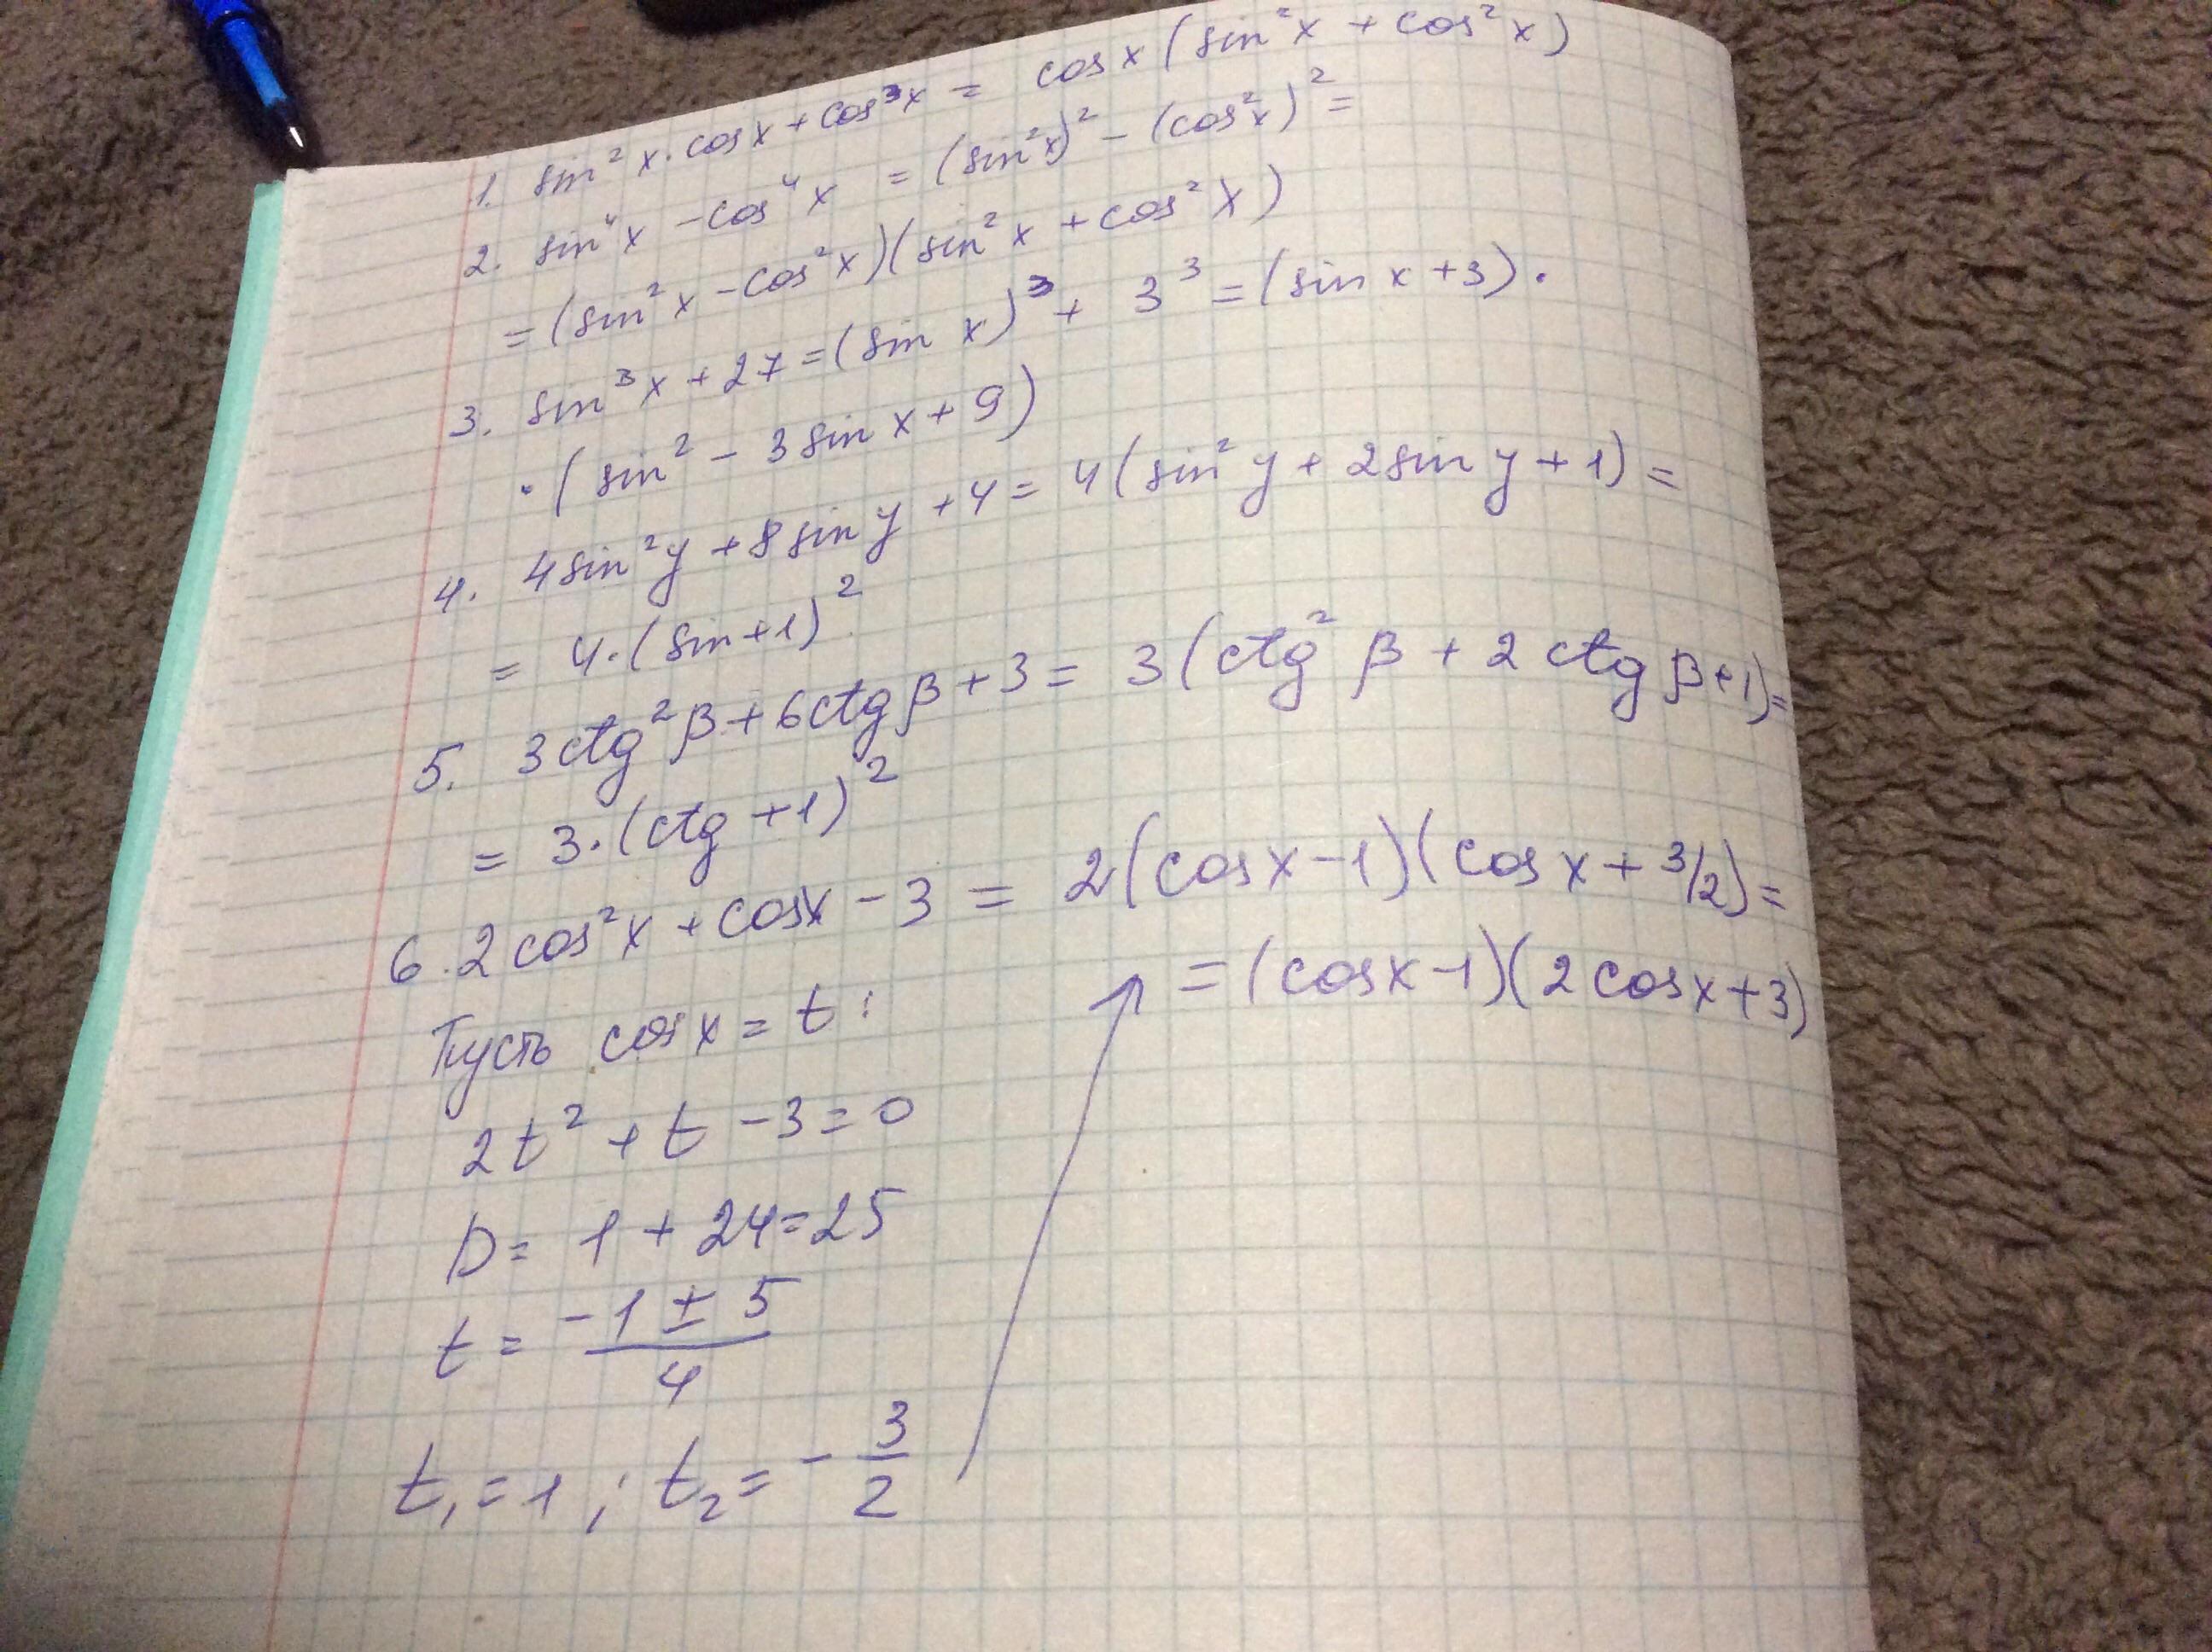 1. sin²x·cosx+cos³x = cosx(sin²x + cos²x)
2. sin⁴x - cos⁴x = (sin²x)² - (cos²x)² =
= (sin²x - cos²x)(sin²x + cos²x)
3. sin³x + 27 = (sin x)³ + 3³ = (sin x + 3) ·
· (sin² - 3 sin x + 9)
4. 4sin²y + 8 sin y + 4 = 4(sin²y + 2sin y + 1) =
= 4·(sin+1)²
5. 3ctg²β + 6ctgβ + 3 = 3(ctg²β + 2 ctg β + 1) =
= 3·(ctg +1)²
6. 2cos²x + cosx - 3 = 2(cosx-1)(cosx + 3/2) =
= (cosx-1)(2cosx+3)
Пусть cosx = t:
2t² + t - 3 = 0
D = 1 + 24 = 25
t = (-1 ± 5)/4
t₁ = 1 ; t₂ = - 3/2